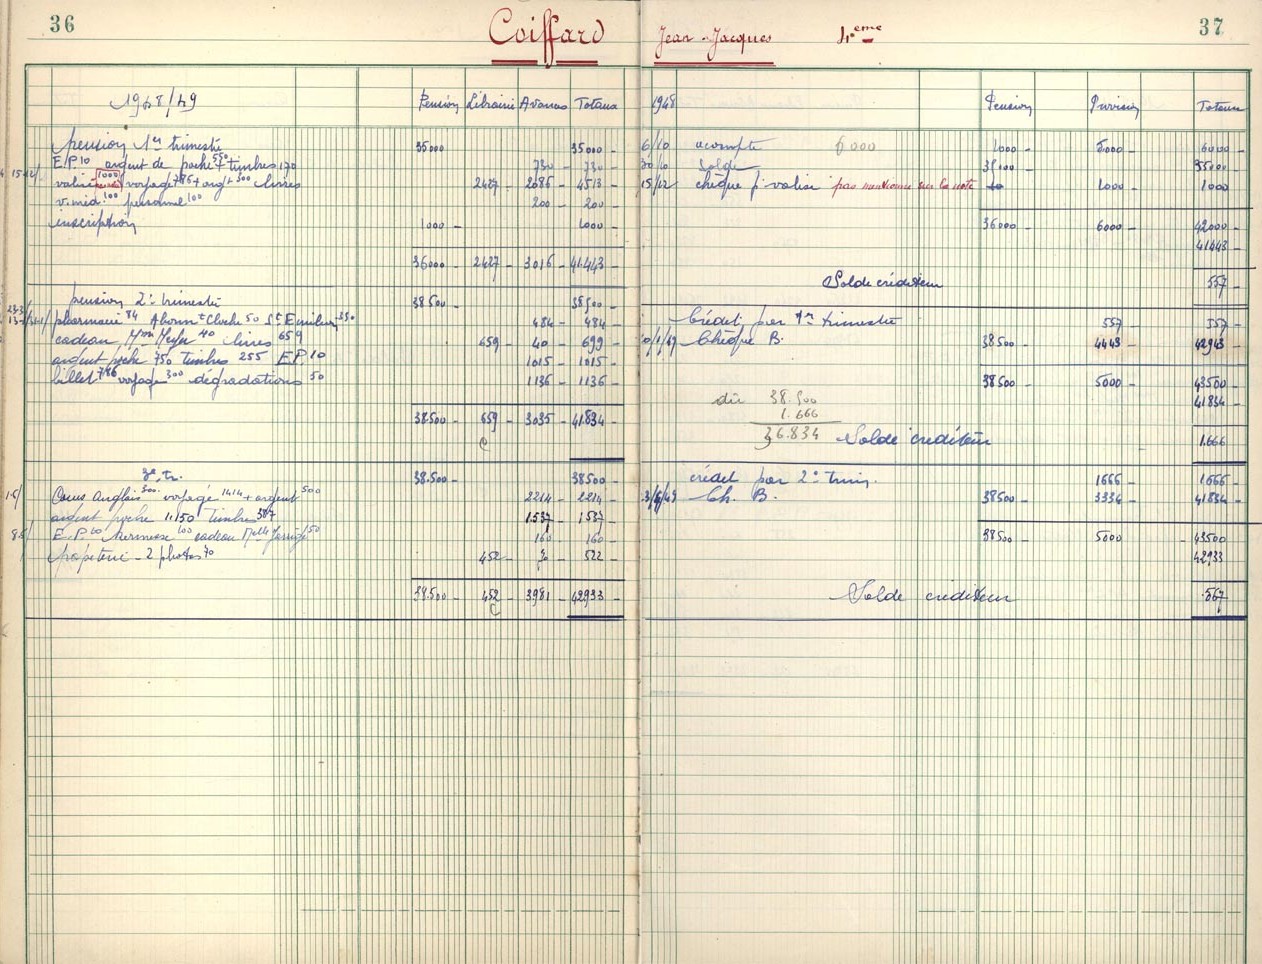 36
Coiffard Jean-Jacques 4eme
37
1948/49 Pension Librairie Avances Totaux
pension 1er trimestre 35000 35000 -
E.P. 10 argent de poche 550 + timbres 170 730 - 730 -
15-12/ valise 1000 voyage 786 + argt 300 livres 2427 - 2086 - 4513 -
v. méd. 100 personnel 100 200 - 200 -
inscription 1000 - 1000 -
36000 - 2427 - 3016 - 41.443 -
pension 2e trimestre 38500 - 38500 -
pharmacie 84 Abonnt Cloche 50 St Emilion 350 484 - 484 -
cadeau 40 livres 659 659 - 40 - 699 -
argent poche 750 timbres 255 E.P. 10 1015 - 1015 -
billet 786 voyage 300 dégradations 50 1136 - 1136 -
38.500 - 659 - 3035 - 41.834 -
C
3e tr. 38.500 - 38500 -
Cours Anglais 300 voyage 1414 + argent 500 2214 - 2214 -
argent poche 1150 timbres 387 1537 - 1537 -
E.P. 10 Kermesse 100 cadeau Melle 150 160 - 160 -
papeterie - 2 photos 70 452 - 70 - 522 -
38.500 - 452 - 3981 - 42933 -
C
1948 Pension Provision Totaux
6/10 acompte 6000 1000 - 5000 - 6000 -
30/10 Solde 35000 - 35000 -
15/12 chèque pr valise pas mentionné sur la note 1000 - 1000 -
36000 - 6000 - 42000 -
41443 -
Solde créditeur 557 -
Crédit par 1er trimestre 557 - 557 -
/1/49 Chèque B. 38500 - 4443 - 42943 -
38500 - 5000 - 43500 -
dû 38.500 41834 -
1.666
36.834 Solde créditeur 1.666 -
crédit par 2e trim. 1666 - 1666 -
Ch. B. 38500 - 3334 - 41834 -
38500 - 5000 - 43500
42933
Solde créditeur 567 -